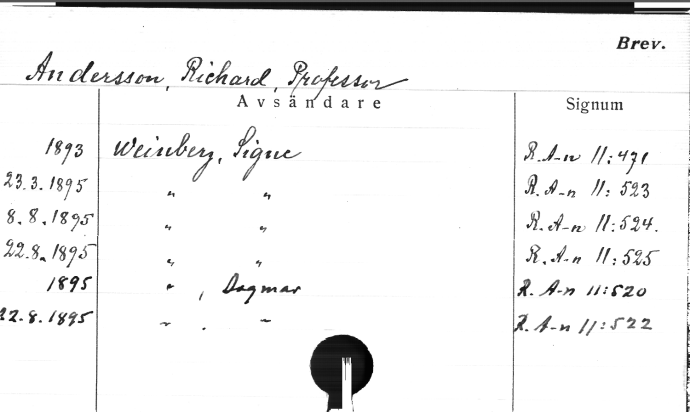 Brev.
Andersson, Richard, Professor
Avsändare Signum
1893 Weinberg, Signe R. A-n II:471
23.3.1895 " " R. A-n II:523
8.8.1895 " " R. A-n II:524.
22.8.1895 " " R. A-n II:525
1895 " , Dagmar R. A-n II:520
22.8.1895 " , " R. A-n II:522